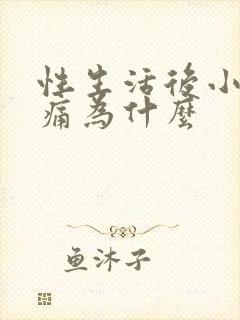 性生活後小
痛為什麼
鱼沐子